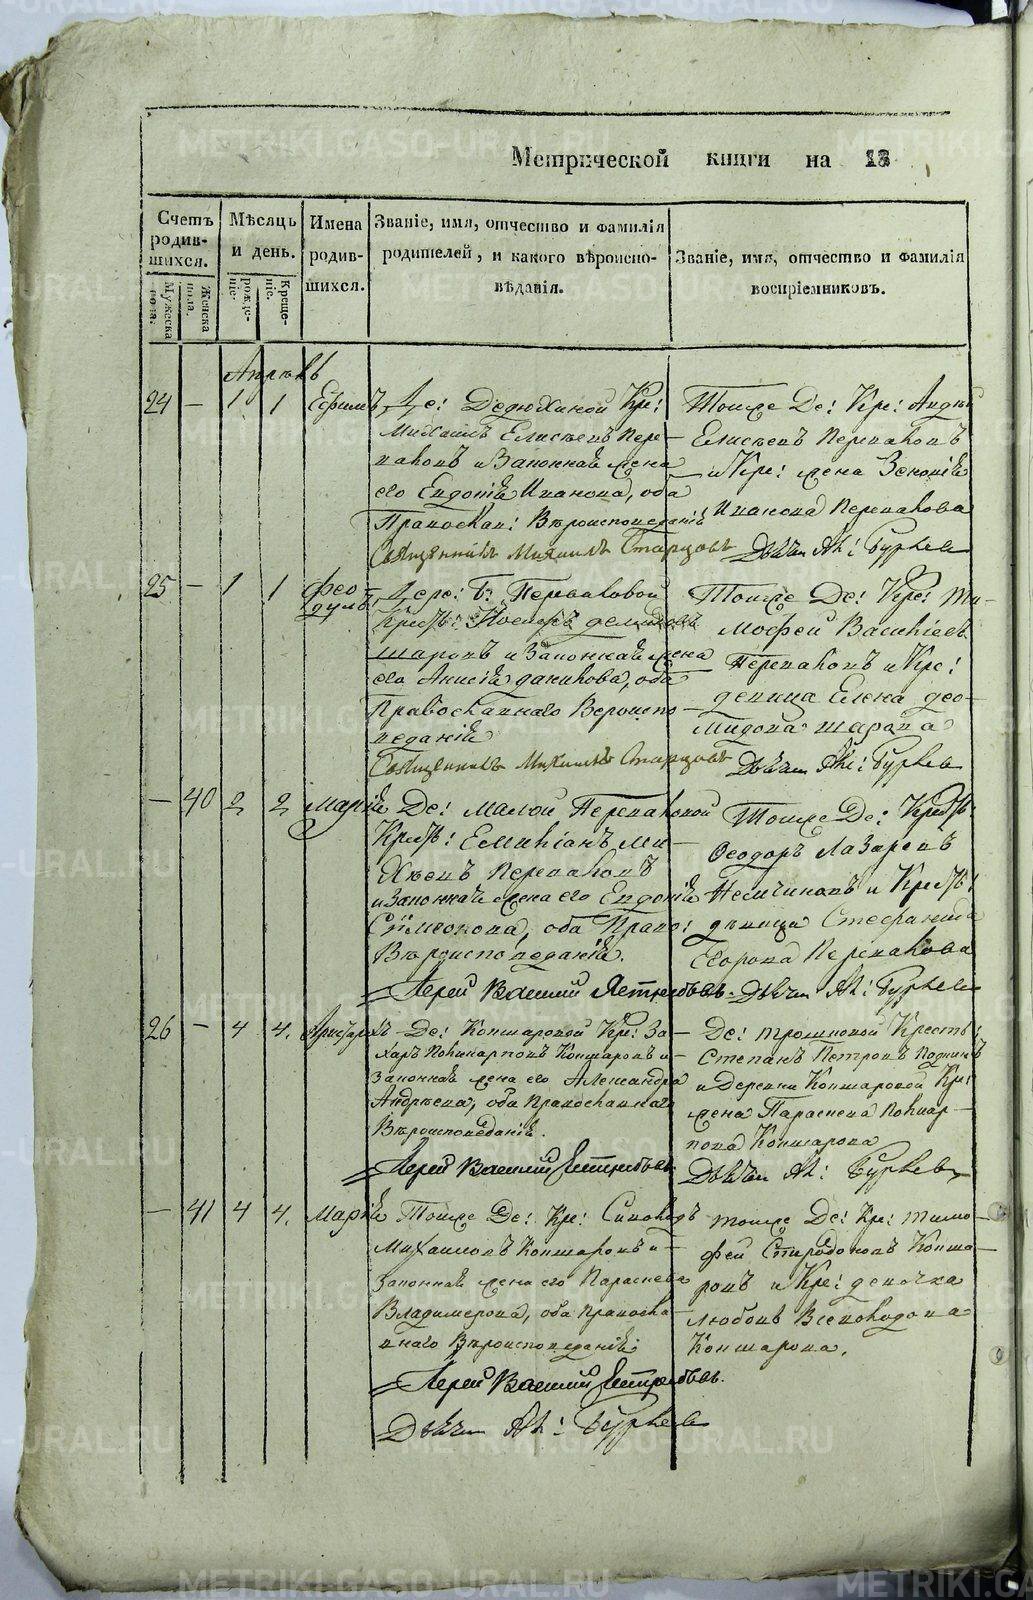 Метрической книги на 18
Счетъ родившихся.
Мужеска пола.
Женска пола.
Мѣсяцъ и день.
рожденіе.
Крещеніе.
Имена родившихся.
Званіе, имя, отчество и фамилія
родителей, и какого вѣроиспо-
вѣданія.
Званіе, имя, отчество и фамилія
воспріемниковъ.
Апрѣль
24 — 1 1 Ефимъ
Де: Дедюхиной Кре:
Михаилъ Елисѣевъ Пере-
валовъ и Законная жена
его Евдокія Иванова, оба
Православ: Вѣроисповеданія
Священникъ Михаилъ Старцовъ
Тойже Де: Кре: Андрей
Елисѣевъ Переваловъ
и Кре: жена Зеновія
Иванова Перевалова
Дьячекъ Ал: Бурлев
25 — 1 1 Фео-
дулъ
Дере: Б: Переваловой
Крест:
Шаровъ и Законная жена
его Анисія данилова, оба
Православнаго Вероиспо-
веданія
Священникъ Михаилъ Старцовъ
Тойже Де: Кре: Ти-
мофей Васильевъ
Перевалов и Кре:
девица Елена део-
мидова Шарова
Дьячекъ Ал: Бурлев
— 40 2 2 Марія
Де: Малой Переваловой
Крест: Емиліанъ Ми-
хѣевъ Перевалов
и Законная жена его Евдокія
Симеонова, оба Право:
Вѣроисповеданія.
Іерей Василій Ястребовъ.
Тойже Де: Крест:
Феодоръ Лазаревъ
Немчиновъ и Крест:
дѣвица Стефанида
Егорова Перевалова
Дьячекъ Ал: Бурлев
26 — 4 4. Аристархъ
Де: Коншаровой Кре: За-
харъ Поликарповъ Коншаровъ и
Законная жена его Александра
Андрѣева, оба Православнаго
Вѣроисповеданія.
Іерей Василій Ястребовъ
Де: Трошковой Крест:
Степанъ Петровъ
и Деревни Коншаровой Кре:
жена Параскева Поликар-
пова Коншарова
Дьячекъ Ал: Бурлев
— 41 4 4. Марія
Тойже Де: Кре:
Михаиловъ Коншаровъ и
Законная жена его Параскева
Владимерова, оба Правосла-
внаго Вѣроисповеданія
Іерей Василій Ястребовъ.
Дьячекъ Ал: Бурлев
тойже Де: Кре: Тимо-
фей Спиридоновъ Конша-
ровъ и Кре: девочка
любовь Всеволодова
Коншарова.
METRIKI.GASO-URAL.RU